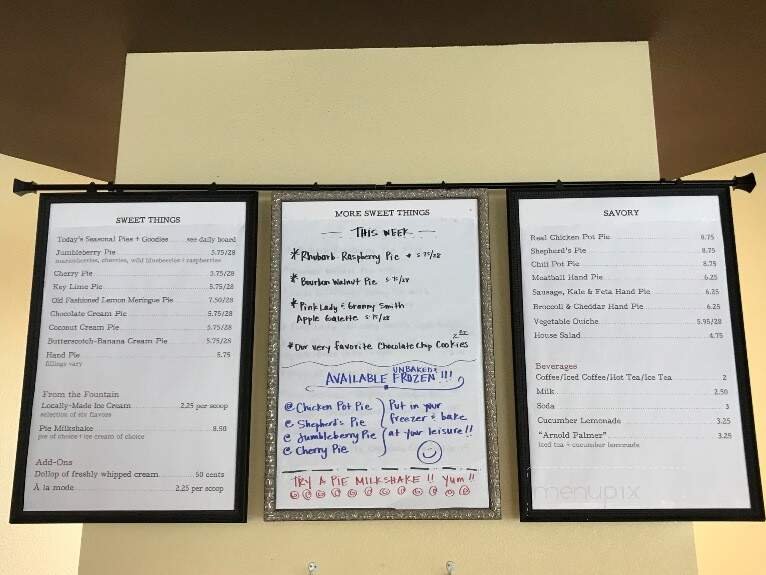 SWEET THINGS
Today's Seasonal Pies + Goodies see daily board
Jumbleberry Pie 5.75/28
marionberries, cherries, wild blueberries + raspberries
Cherry Pie 5.75/28
Key Lime Pie 5.75/28
Old Fashioned Lemon Meringue Pie 7.50/28
Chocolate Cream Pie 5.75/28
Coconut Cream Pie 5.75/28
Butterscotch-Banana Cream Pie 5.75/28
Hand Pie 5.75
fillings vary
From the Fountain
Locally-Made Ice Cream 2.25 per scoop
selection of six flavors
Pie Milkshake 8.50
pie of choice + ice cream of choice
Add-Ons
Dollop of freshly whipped cream 50 cents
À la mode 2.25 per scoop
MORE SWEET THINGS
THIS WEEK
* Rhubarb Raspberry Pie 5.75/28
* Bourbon Walnut Pie 5.75/28
* Pink Lady & Granny Smith
Apple Galette 5.75/28
* Our very favorite Chocolate Chip Cookies
UNBAKED +
AVAILABLE FROZEN !!!
@ Chicken Pot Pie
@ Shepherd's Pie
@ Jumbleberry Pie
@ Cherry Pie
Put in your
freezer + bake
at your leisure !!
TRY A PIE MILKSHAKE !! Yum !!
SAVORY
Real Chicken Pot Pie 8.75
Shepherd's Pie 8.75
Chili Pot Pie 8.75
Meatball Hand Pie 6.25
Sausage, Kale & Feta Hand Pie 6.25
Broccoli & Cheddar Hand Pie 6.25
Vegetable Quiche 5.95/28
House Salad 4.75
Beverages
Coffee/Iced Coffee/Hot Tea/Ice Tea 2
Milk 2.50
Soda 3
Cucumber Lemonade 3.25
"Arnold Palmer" 3.25
iced tea + cucumber lemonade
menupix